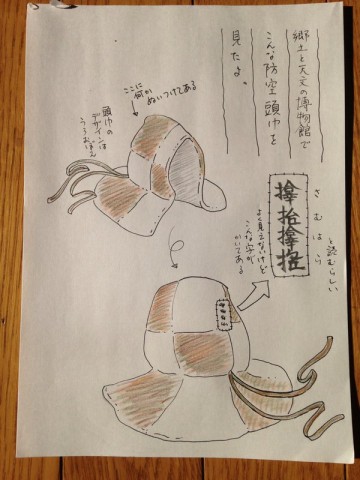 郷土と天文の博物館で
こんな防空頭巾を
見たよ。
ここに
何か
ぬいつけてある
頭巾の
デザインは
うろおぼえ
さむはら
と読むらしい
よく見えないけど
こんな字が
かいてある